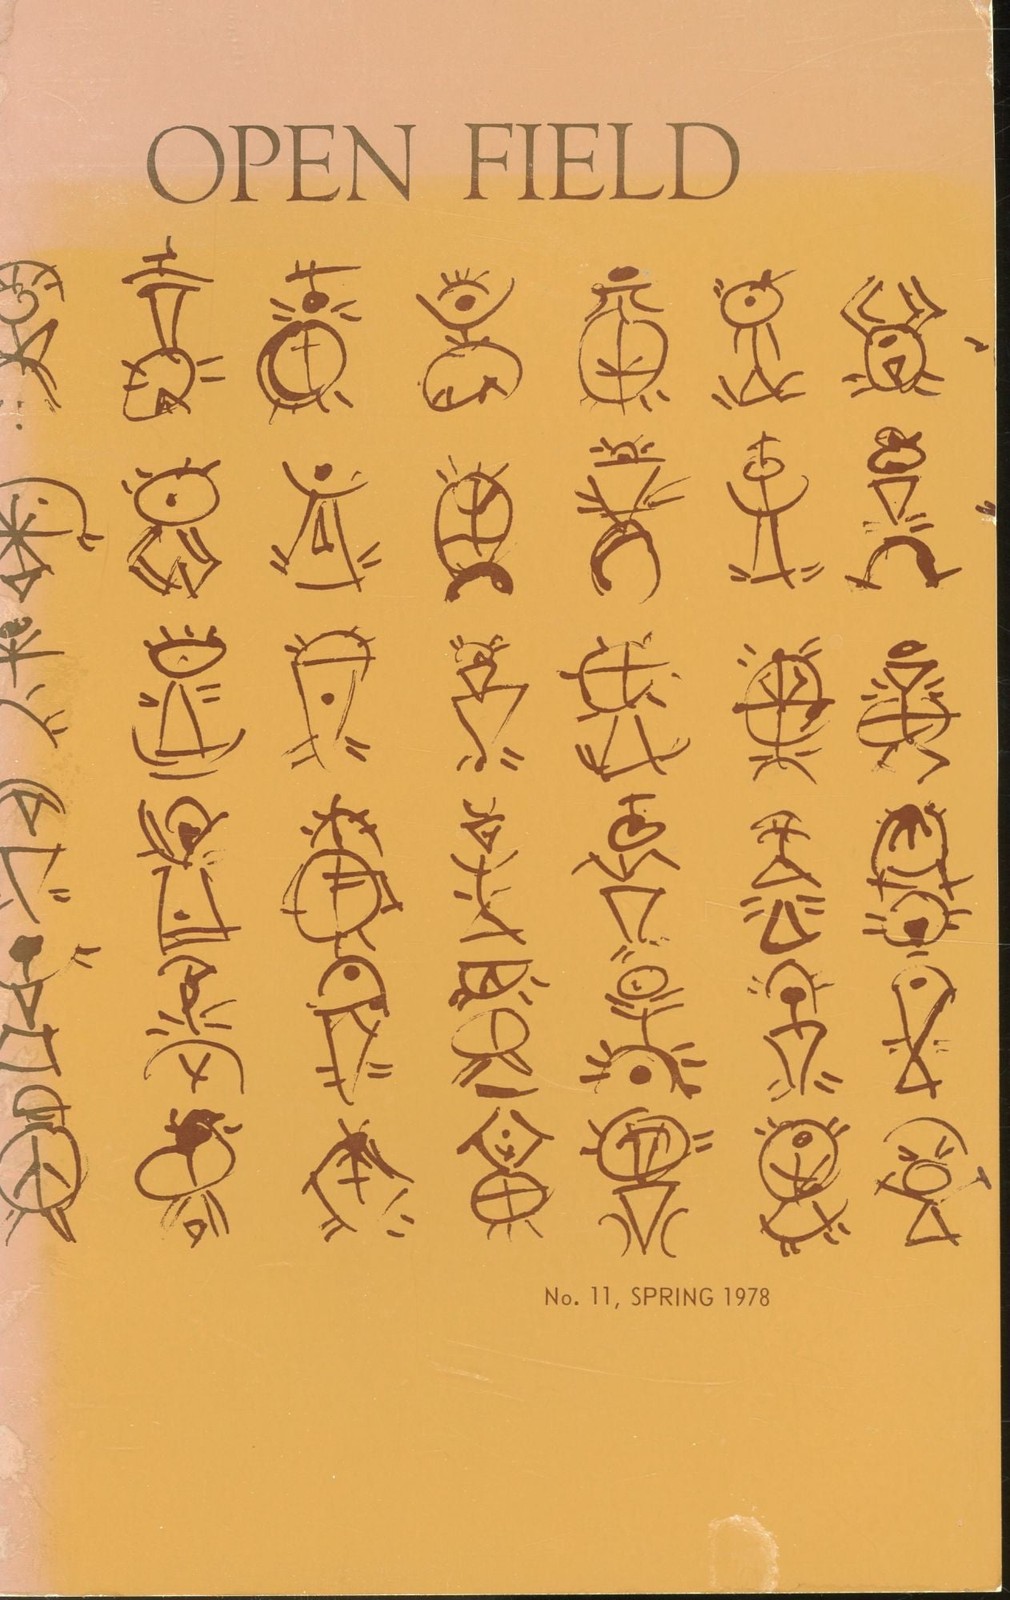 OPEN FIELD
No. 11, SPRING 1978